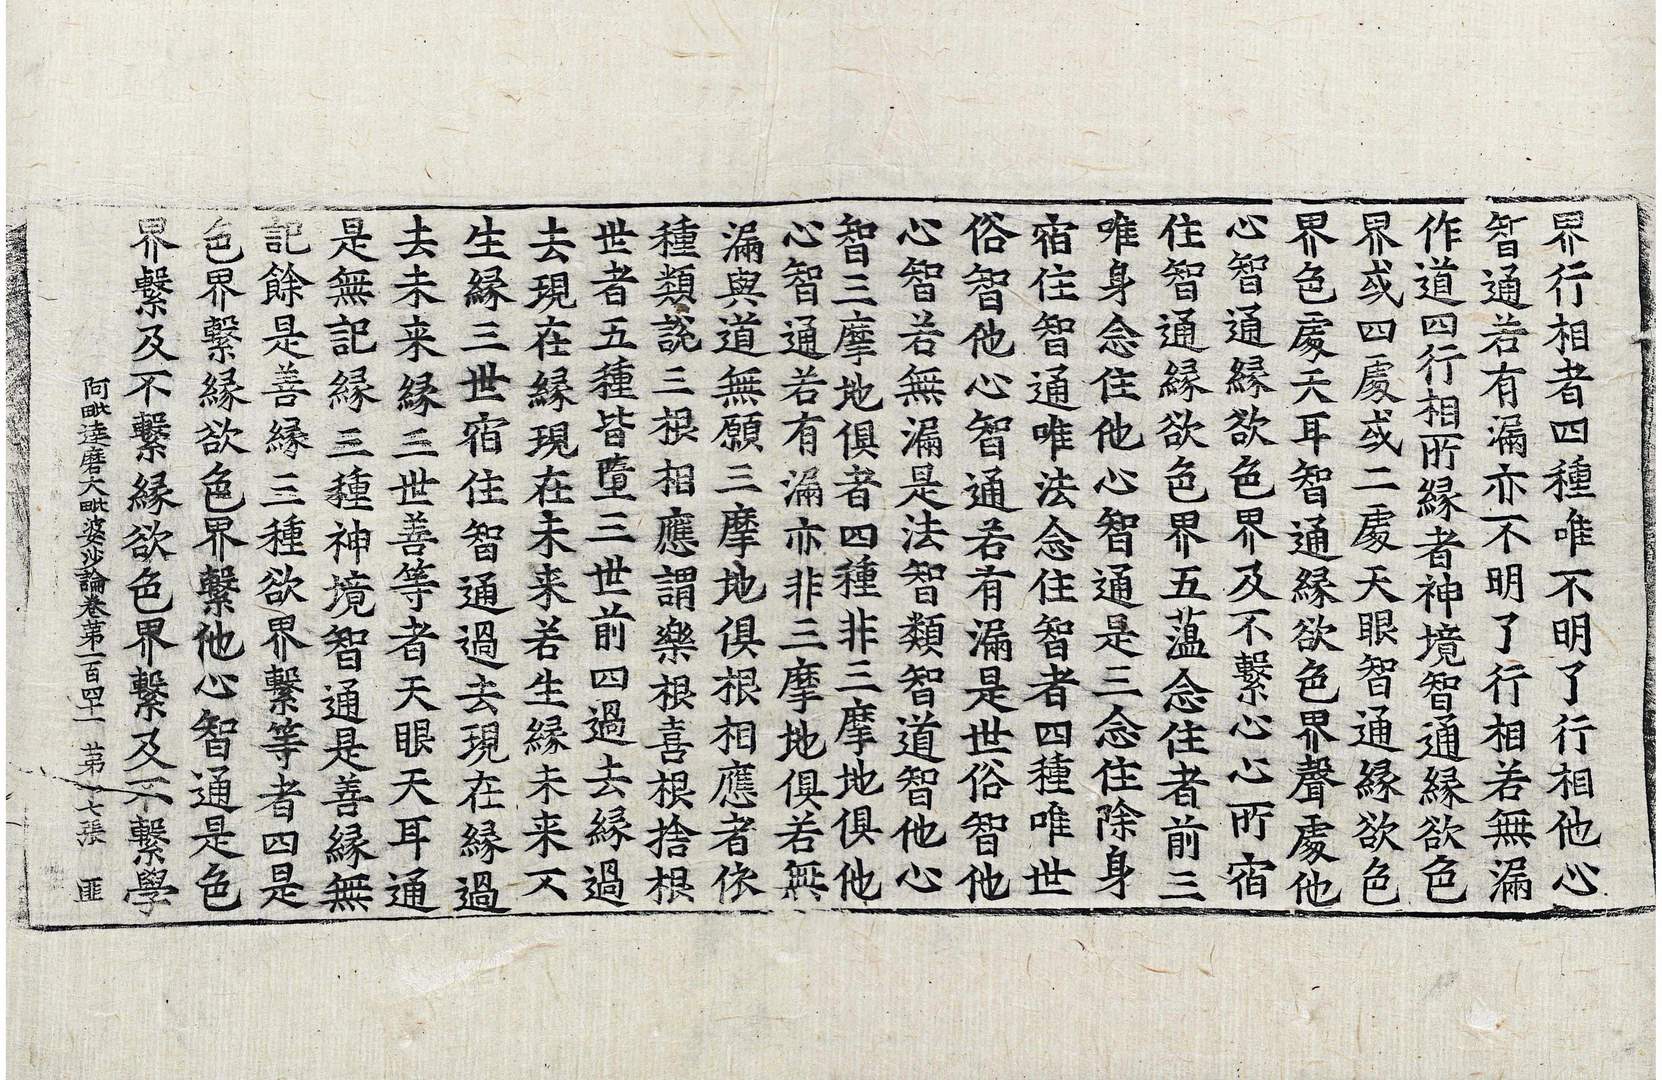 界行相者四種唯不明了行相他心
智通若有漏亦不明了行相若無漏
作道四行相所緣者神境智通緣欲色
界或四處或二處天眼智通緣欲色
界色處天耳智通緣欲色界聲處他
心智通緣欲色界及不繫心心所宿
住智通緣欲色界五蘊念住者前三
唯身念住他心智通是三念住除身
宿住智通唯法念住智者四種唯世
俗智他心智通若有漏是世俗智他
心智若無漏是法智類智道智他心
智三摩地俱者四種非三摩地俱他
心智通若有漏亦非三摩地俱若無
漏與道無願三摩地俱根相應者依
種類說三根相應謂樂根喜根捨根
世者五種皆墮三世前四過去緣過
去現在緣現在未来若生緣未来不
生緣三世宿住智通過去現在緣過
去未来緣三世善等者天眼天耳通
是無記緣三種神境智通是善緣無
記餘是善緣三種欲界繫等者四是
色界繫緣欲色界繫他心智通是色
界繫及不繫緣欲色界繫及不繫學
阿毗逹磨大毗婆沙論卷第一百四十一　第十七張　匪